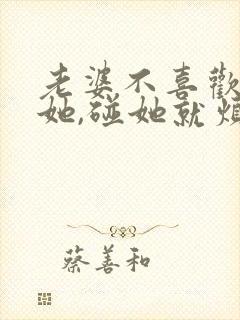 老婆不喜歡
她,碰她就煩
蔡善和